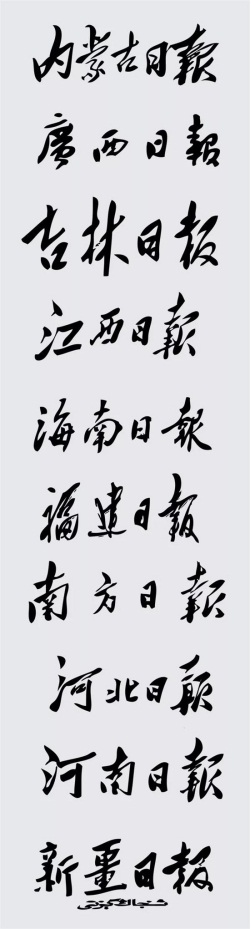 内蒙古日报
廣西日報
吉林日报
江西日報
海南日报
福建日报
南方日報
河北日报
河南日報
新疆日报